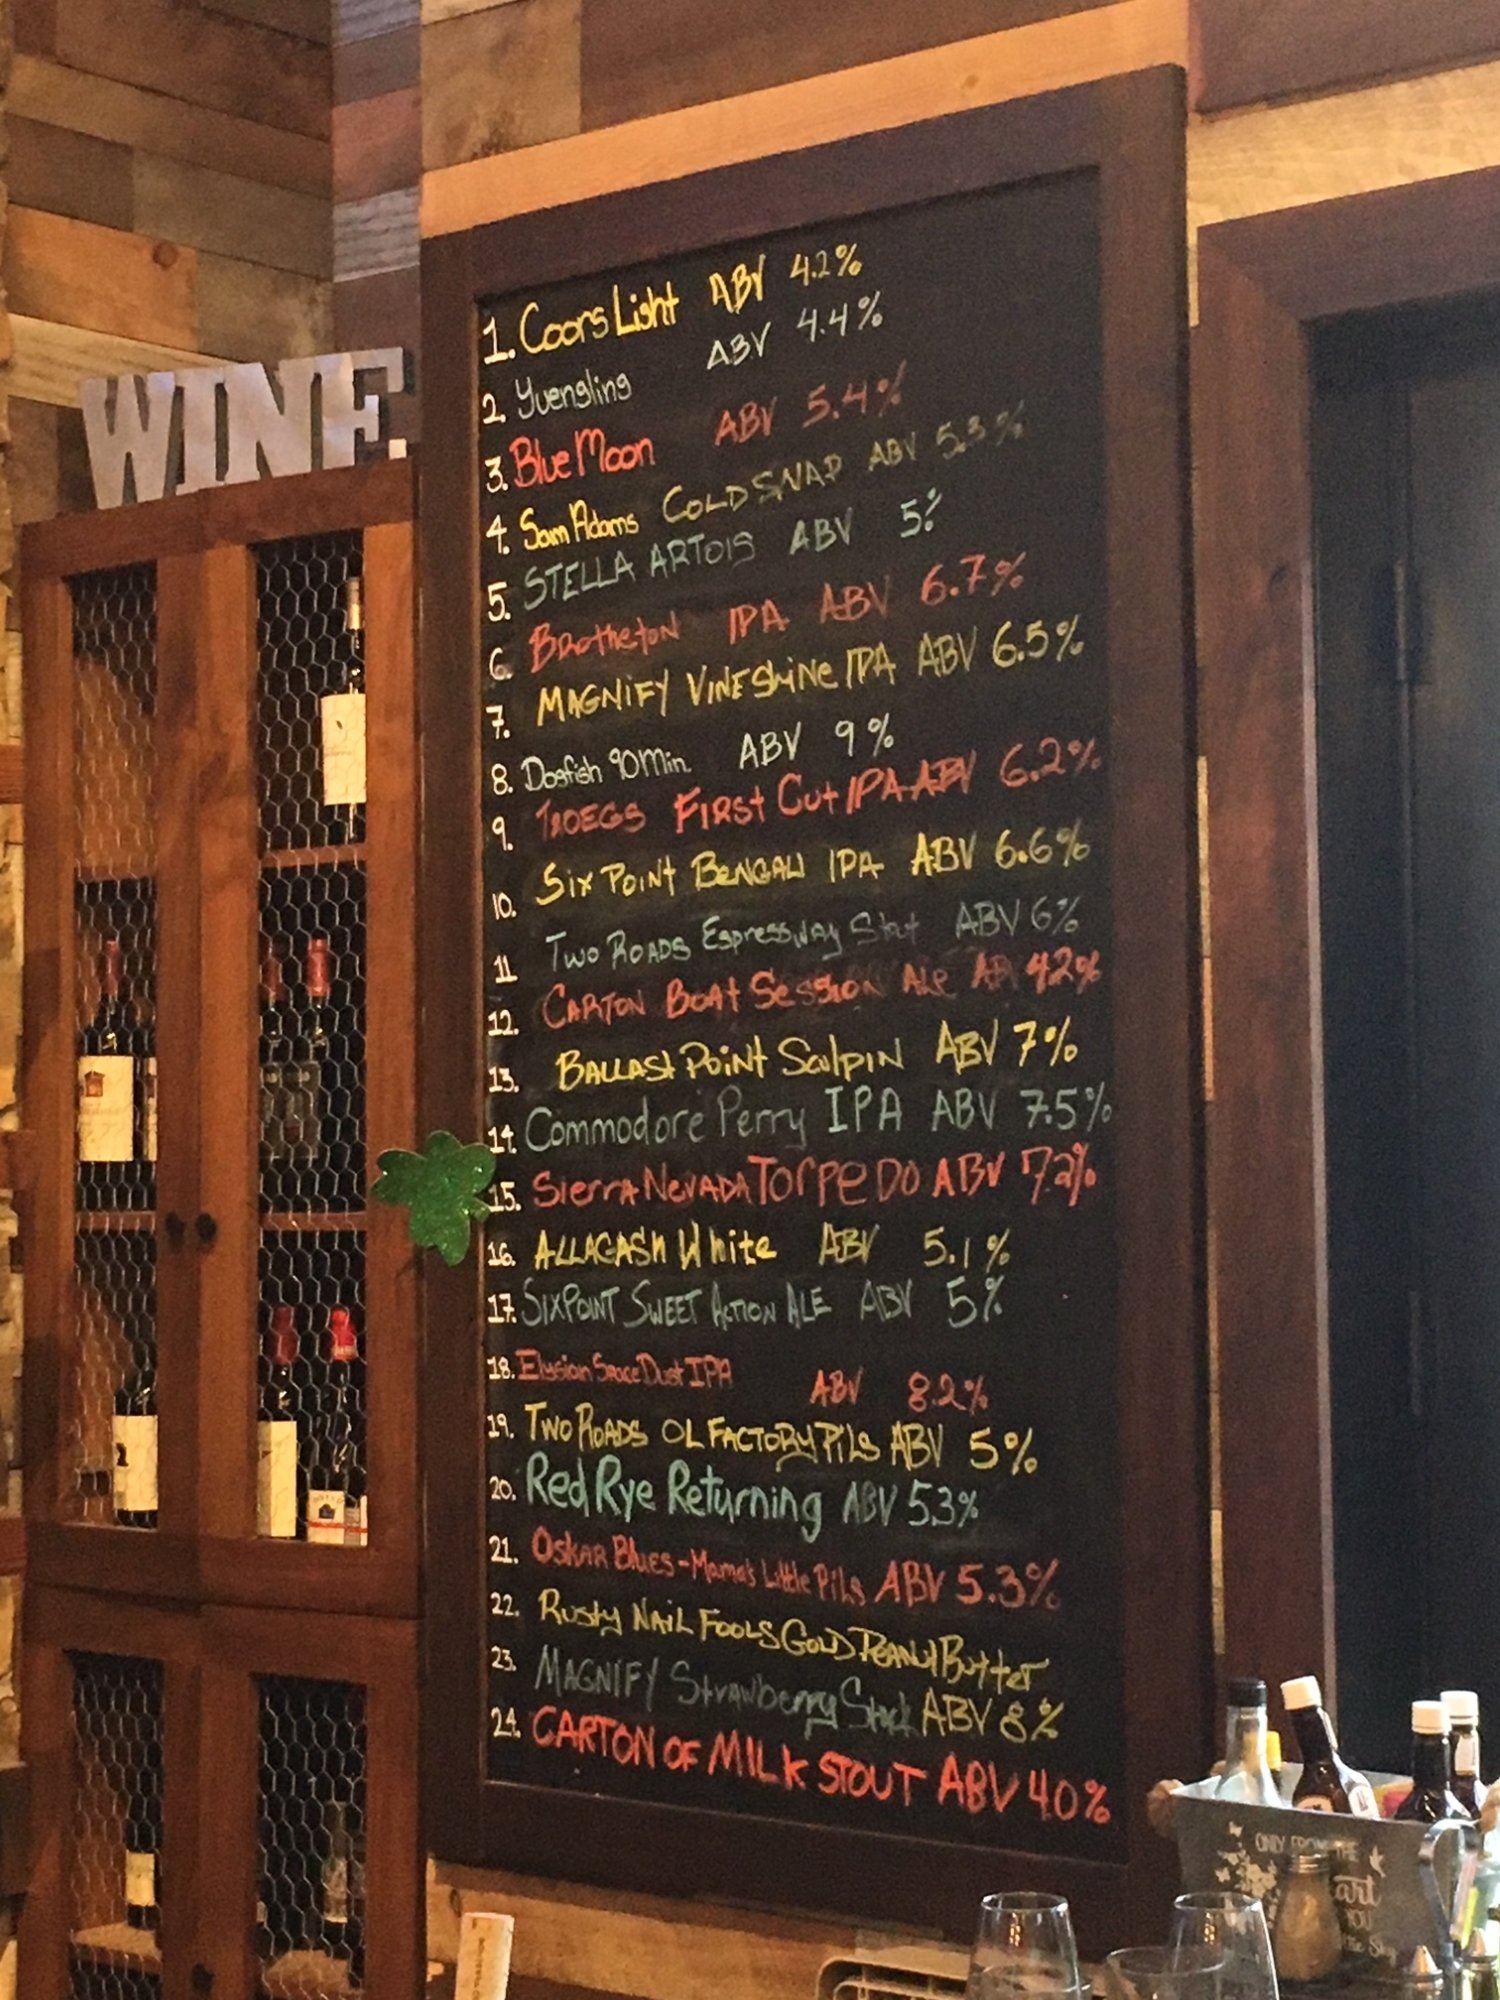 WINE
1. Coors Light ABV 4.2%
2. Yuengling ABV 4.4%
3. Blue Moon ABV 5.4%
4. Sam Adams COLD SNAP ABV 5.3%
5. STELLA ARTOIS ABV 5%
6. Brotheton IPA ABV 6.7%
7. MAGNIFY VINE ShiNe IPA ABV 6.5%
8. Dogfish 90 Min. ABV 9%
9. TROEGS FIRSt Cut IPA ABV 6.2%
10. Six Point BENGALI IPA ABV 6.6%
11 Two ROADS Espressway Stout ABV 6%
12. CARTON BOAt SeSSION ALe AB 4.2%
13. BALLAST POINT Sculpin ABV 7%
14. Commodore Perry IPA ABV 7.5%
15. SierrA NeVADA TorpeDO ABV 7.2%
16. ALLAGASH White ABV 5.1%
17. SIXPOINT SWEET ACTION ALE ABV 5%
18. Elysian Space Dust IPA ABV 8.2%
19. TWO ROADS OL FACTORY PiLS ABV 5%
20. Red Rye Returning ABV 5.3%
21. OSKAR BLUES - Mama's Little Pils ABV 5.3%
22. Rusty NAIL FOOLS GOLD PEANUT BUtter
23. MAGNIFY Strawberry ABV 8%
24. CARTON OF MILK STOUT ABV 4.0%
ONLY FROM THE
YOU
the Sky